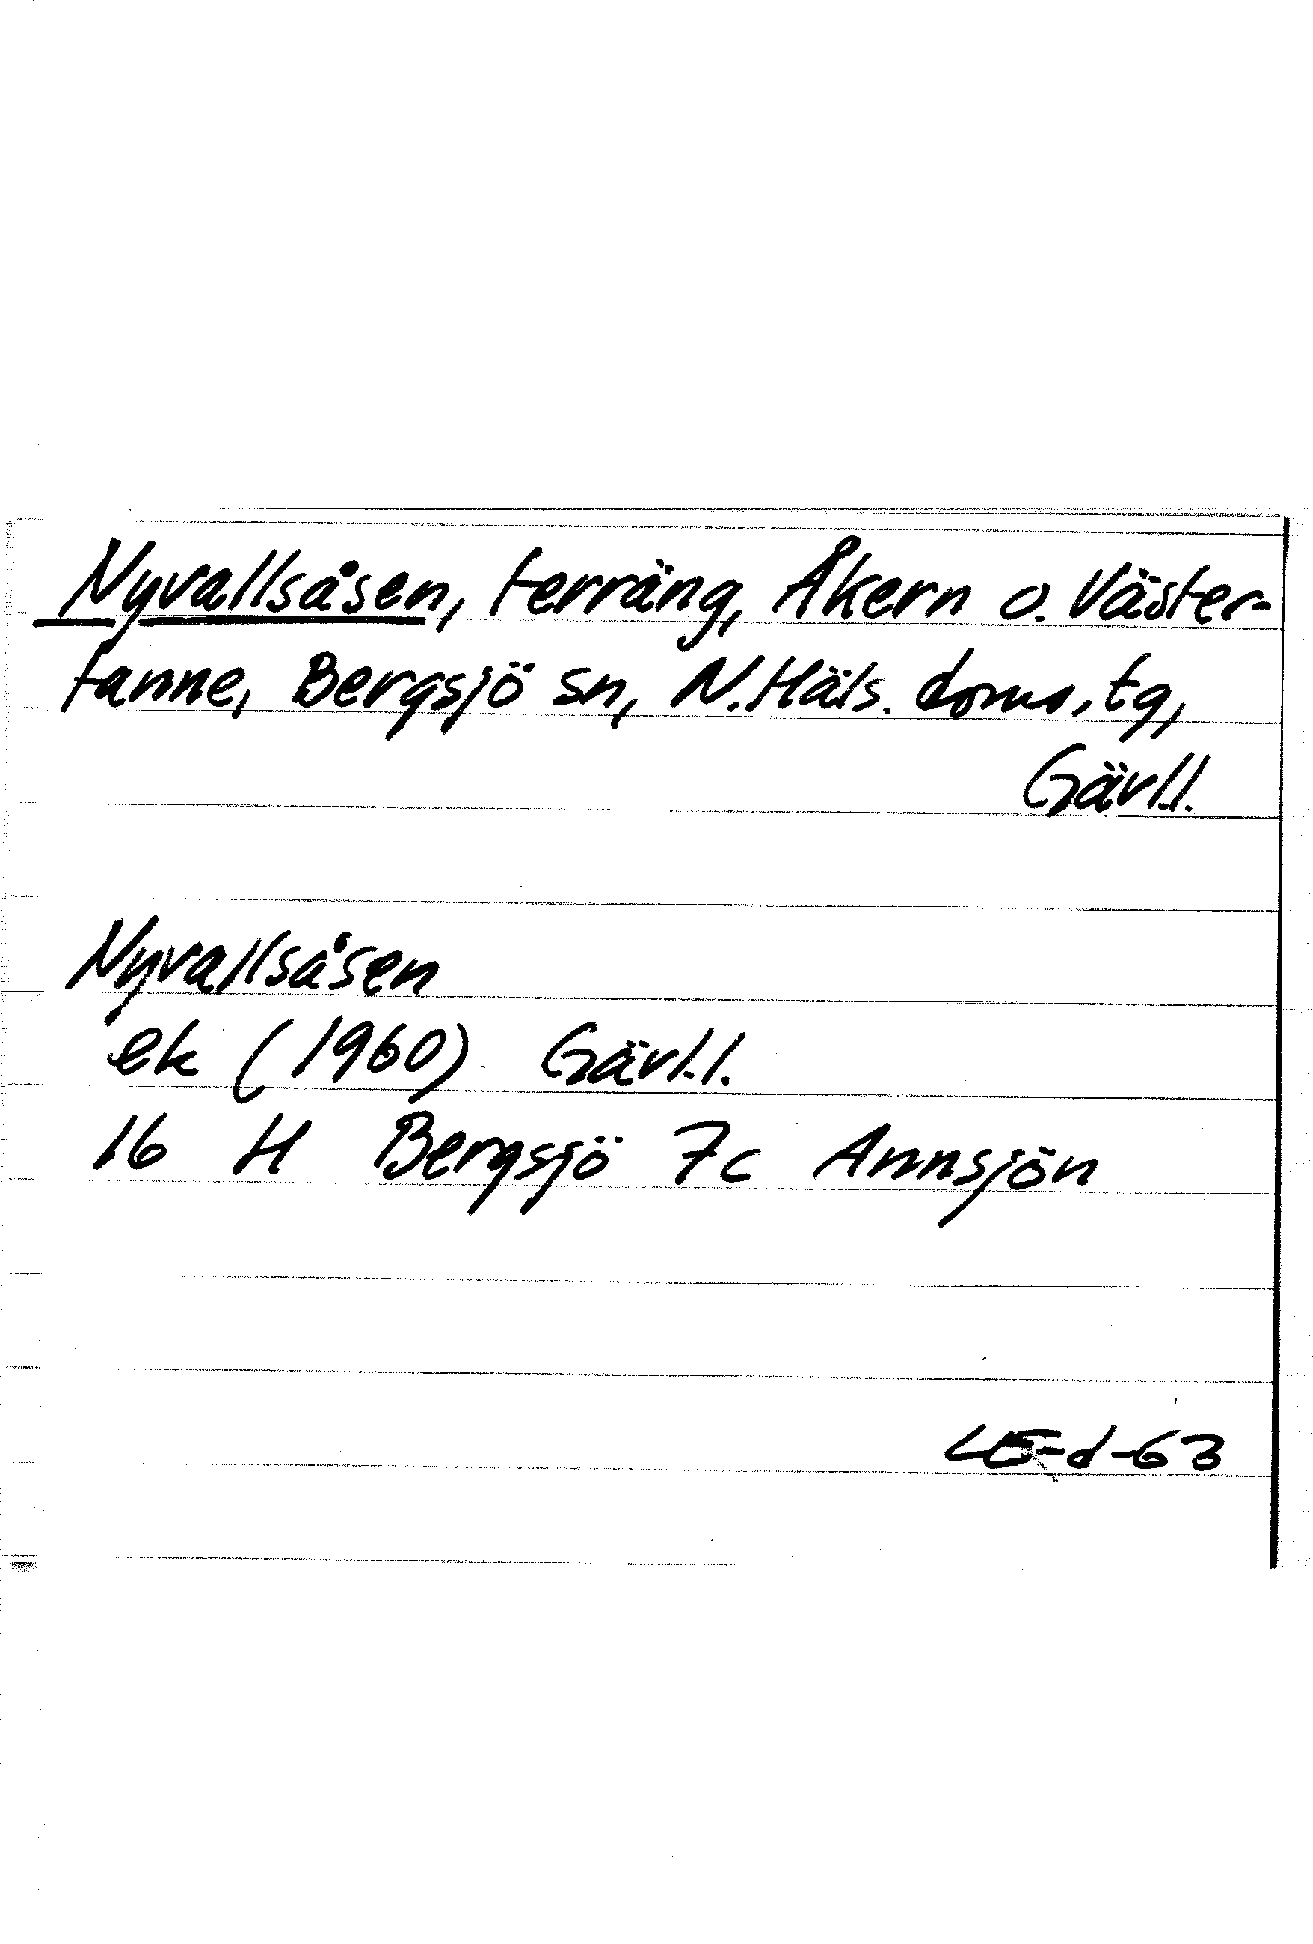 Nyvallsåsen, terräng, Åkern o. Väster-
tanne, Bergsjö sn, N. Häls. doms. tg,
Gävl.l.
Nyvallsåsen
ek (1960) Gävl.l.
16 H Bergsjö 7c Annsjön
-d-63